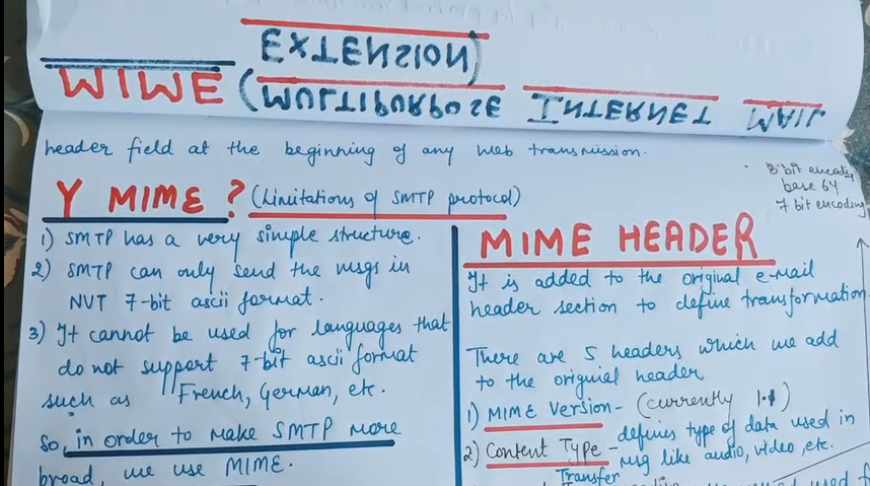 MIME (MULTIPURPOSE INTERNET MAIL
EXTENSION)
header field at the beginning of any web transmission.
Y MIME? (Limitations of SMTP protocol)
1) SMTP has a very simple structure.
2) SMTP can only send the msgs in
NVT 7-bit ascii format.
3) It cannot be used for languages that
do not support 7-bit ascii format
such as French, German, etc.
So, in order to make SMTP more
broad, we use MIME.
8 bit encoding
base 64
7 bit encoding
MIME HEADER
It is added to the original e-mail
header section to define transformation.
There are 5 headers which we add
to the original header
1) MIME Version - (currently 1.1)
2) Content Type - defines type of data used in
msg like audio, video, etc.
Transfer
used